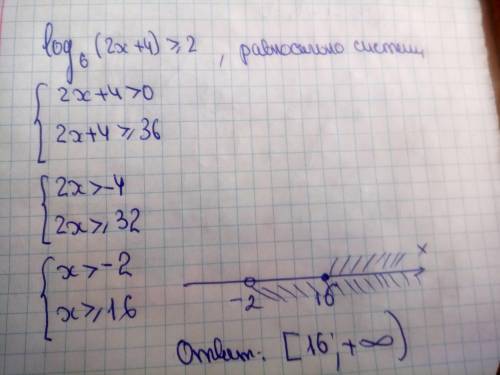 log₆(2x+4) ≥ 2 , равносильно систем
{ 2x+4>0
2x+4 ≥ 36
{ 2x>-4
2x ≥ 32
{ x>-2
x ≥ 16
-2 16 x
Ответ: [16 ; +∞)